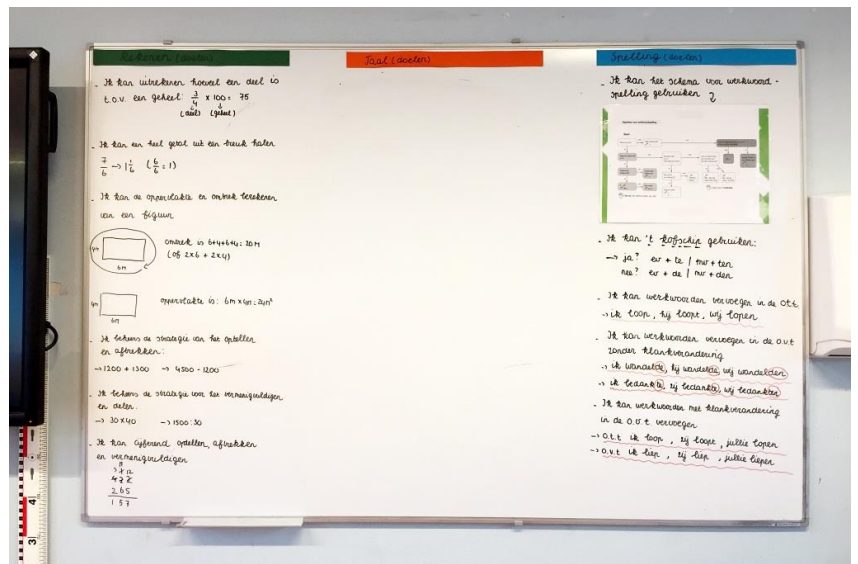 Rekenen (doelen)
- Ik kan uitrekenen hoeveel een deel is
t.o.v. een geheel: 3/4 x 100 = 75
(deel) (geheel)
- Ik kan een heel getal uit een breuk halen
7/6 → 1 1/6 (6/6 = 1)
- Ik kan de oppervlakte en omtrek berekenen
van een figuur
4m
omtrek is 6+4+6+4 = 20 M
(of 2x6 + 2x4)
6m
4m
oppervlakte is: 6m x 4m = 24m²
6m
- Ik beheers de strategie van het optellen
en aftrekken:
→ 1200 + 1300 → 4500 - 1200
- Ik beheers de strategie voor het vermenigvuldigen
en delen.
→ 30 x 40 → 1500 : 30
- Ik kan cijferend optellen, aftrekken
en vermenigvuldigen
265
157
Taal (doelen)
Spelling (doelen)
- Ik kan het schema voor werkwoord-
spelling gebruiken
- Ik kan 't kofschip gebruiken:
→ ja? ev + te | mv + ten
nee? ev + de | mv + den
- Ik kan werkwoorden vervoegen in de o.t.t.
→ ik loop, hij loopt, wij lopen
- Ik kan werkwoorden vervoegen in de o.v.t
zonder klankverandering
→ ik wandelde, hij wandelde, wij wandelden
→ ik bedankte, zij bedankte, wij bedankten
- Ik kan werkwoorden met klankverandering
in de o.v.t vervoegen
→ o.t.t ik loop, zij loopt, jullie lopen
→ o.v.t ik liep, zij liep, jullie liepen
4
3